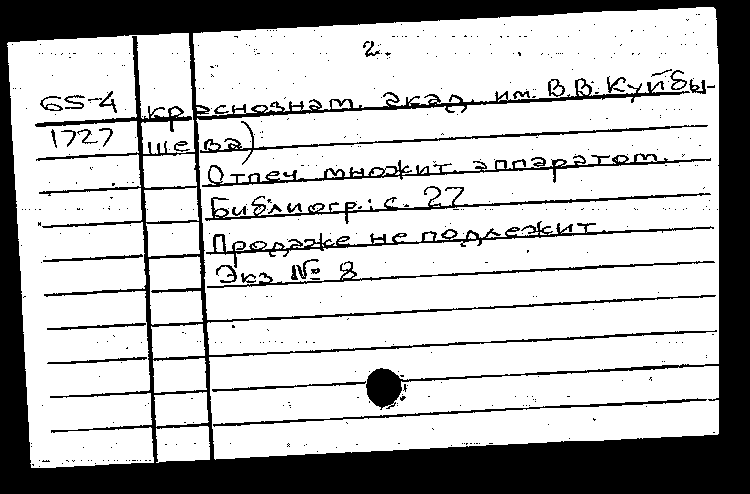 2.
65-4 краснознам. акад. им. В.В. Куйбы-
1727 шева)
Отпеч. множит. аппаратом.
Библиогр.: с. 27
Продаже не подлежит.
Экз № 8